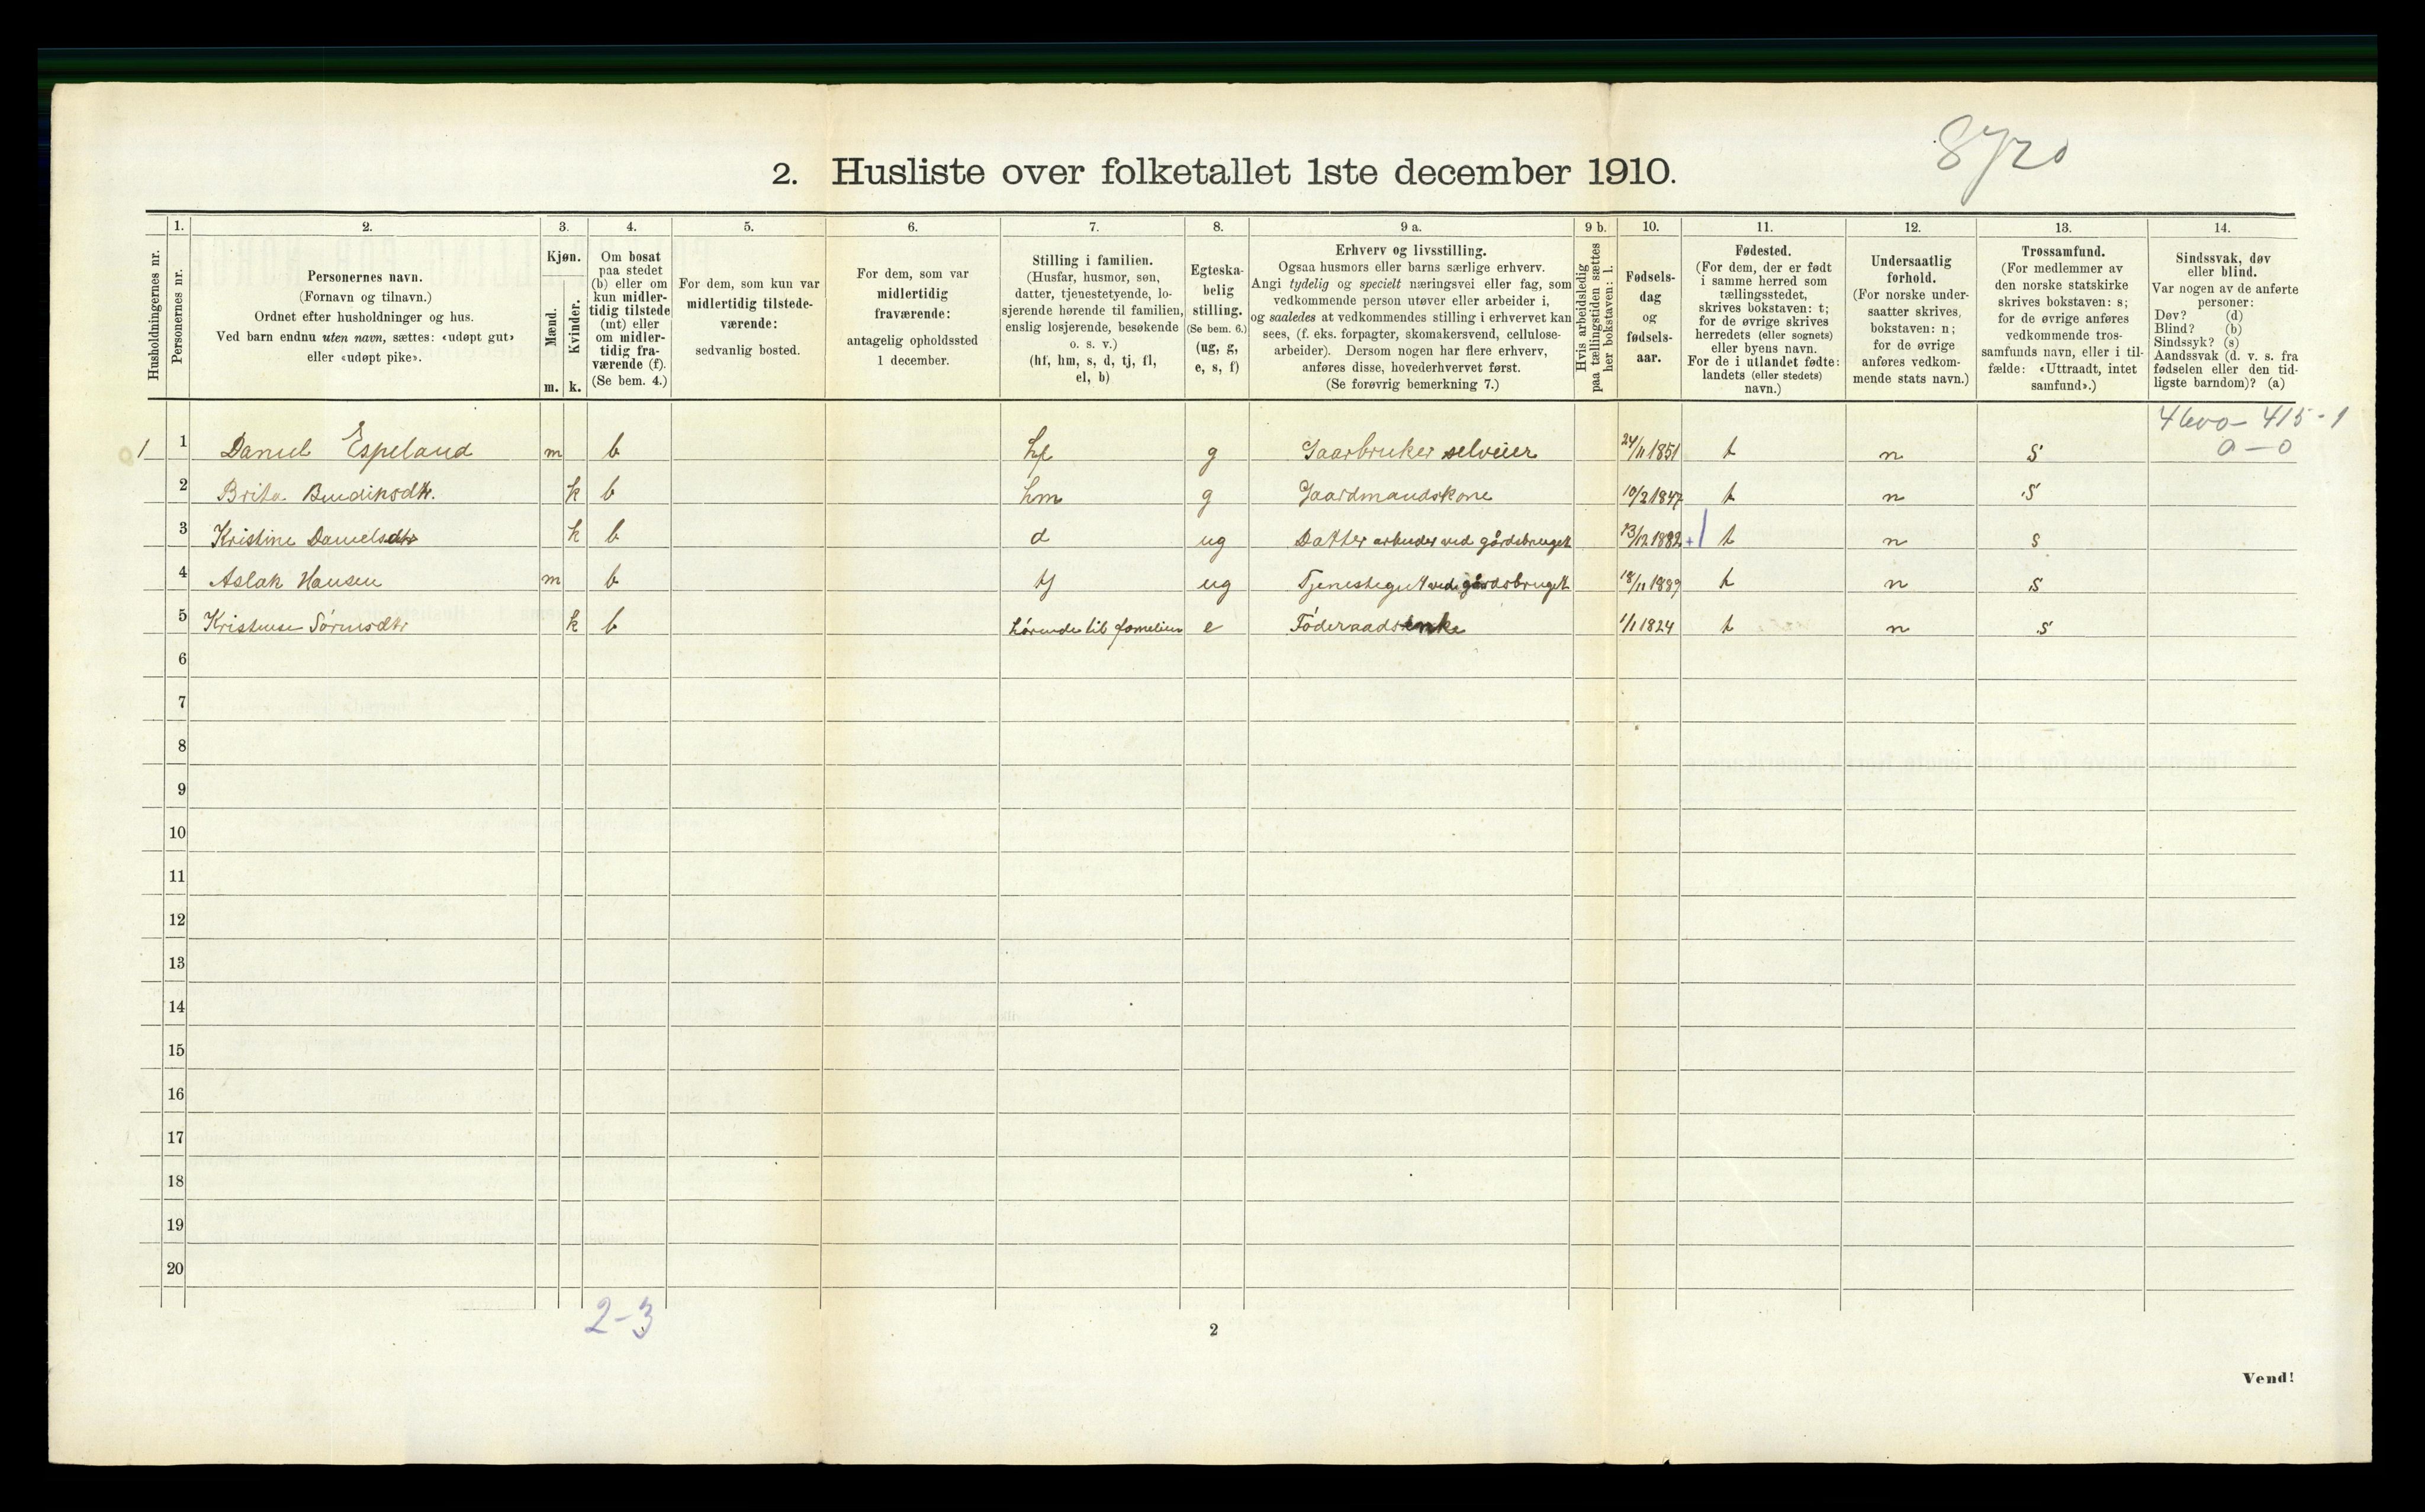 8720
2. Husliste over folketallet 1ste december 1910.
Husholdningernes nr.
1.
Personernes nr.
2.
Personernes navn.
(Fornavn og tilnavn.)
Ordnet efter husholdninger og hus.
Ved barn endnu uten navn, sættes: «udøpt gut»
eller «udøpt pike».
3.
Kjøn.
Mænd.
m.
Kvinder.
k.
4.
Om bosat
paa stedet
(b) eller om
kun midler-
tidig tilstede
(mt) eller
om midler-
tidig fra-
værende (f).
(Se bem. 4.)
5.
For dem, som kun var
midlertidig tilstede-
værende:
sedvanlig bosted.
6.
For dem, som var
midlertidig
fraværende:
antagelig opholdssted
1 december.
7.
Stilling i familien.
(Husfar, husmor, søn,
datter, tjenestetyende, lo-
sjerende hørende til familien,
enslig losjerende, besøkende
o. s. v.)
(hf, hm, s, d, tj, fl,
el, b)
8.
Egteska-
belig
stilling.
(Se bem. 6.)
(ug, g,
e, s, f)
9 a.
Erhverv og livsstilling.
Ogsaa husmors eller barns særlige erhverv.
Angi tydelig og specielt næringsvei eller fag, som
vedkommende person utøver eller arbeider i,
og saaledes at vedkommendes stilling i erhvervet kan
sees, (f. eks. forpagter, skomakersvend, cellulose-
arbeider). Dersom nogen har flere erhverv,
anføres disse, hovederhvervet først.
(Se forøvrig bemerkning 7.)
9 b.
Hvis arbeidsledig
paa tællingstiden sættes
her bokstaven: l.
10.
Fødsels-
dag
og
fødsels-
aar.
11.
Fødested.
(For dem, der er født
i samme herred som
tællingsstedet,
skrives bokstaven: t;
for de øvrige skrives
herredets (eller sognets)
eller byens navn.
For de i utlandet fødte:
landets (eller stedets)
navn.)
12.
Undersaatlig
forhold.
(For norske under-
saatter skrives,
bokstaven: n;
for de øvrige
anføres vedkom-
mende stats navn.)
13.
Trossamfund.
(For medlemmer av
den norske statskirke
skrives bokstaven: s;
for de øvrige anføres
vedkommende tros-
samfunds navn, eller i til-
fælde: «Uttraadt, intet
samfund».)
14.
Sindssvak, døv
eller blind.
Var nogen av de anførte
personer:
Døv? (d)
Blind? (b)
Sindssyk? (s)
Aandssvak (d. v. s. fra
fødselen eller den tid-
ligste barndom)? (a)
4600 - 415 - 1
0 - 0
1 1 Daniel Espeland m b hf g Gaarbruker selveier 24/11 1851 t n s
2 Brita Bendiksdtr. k b hm g Gaardmandskone 10/2 1847 t n s
3 Kristine Danielsdtr k b d ug Datter arbeider ved gårdsbruget 23/12 1882 + t n s
4 Aslak Hansen m b tj ug Tjenestegut ved gårdsbruget 18/11 1889 t n s
5 Kristense Sørensdtr k b hørende til famelien e Føderaadsenke 1/1 1824 t n s
6
7
8
9
10
11
12
13
14
15
16
17
18
19
20
2-3
2
Vend!